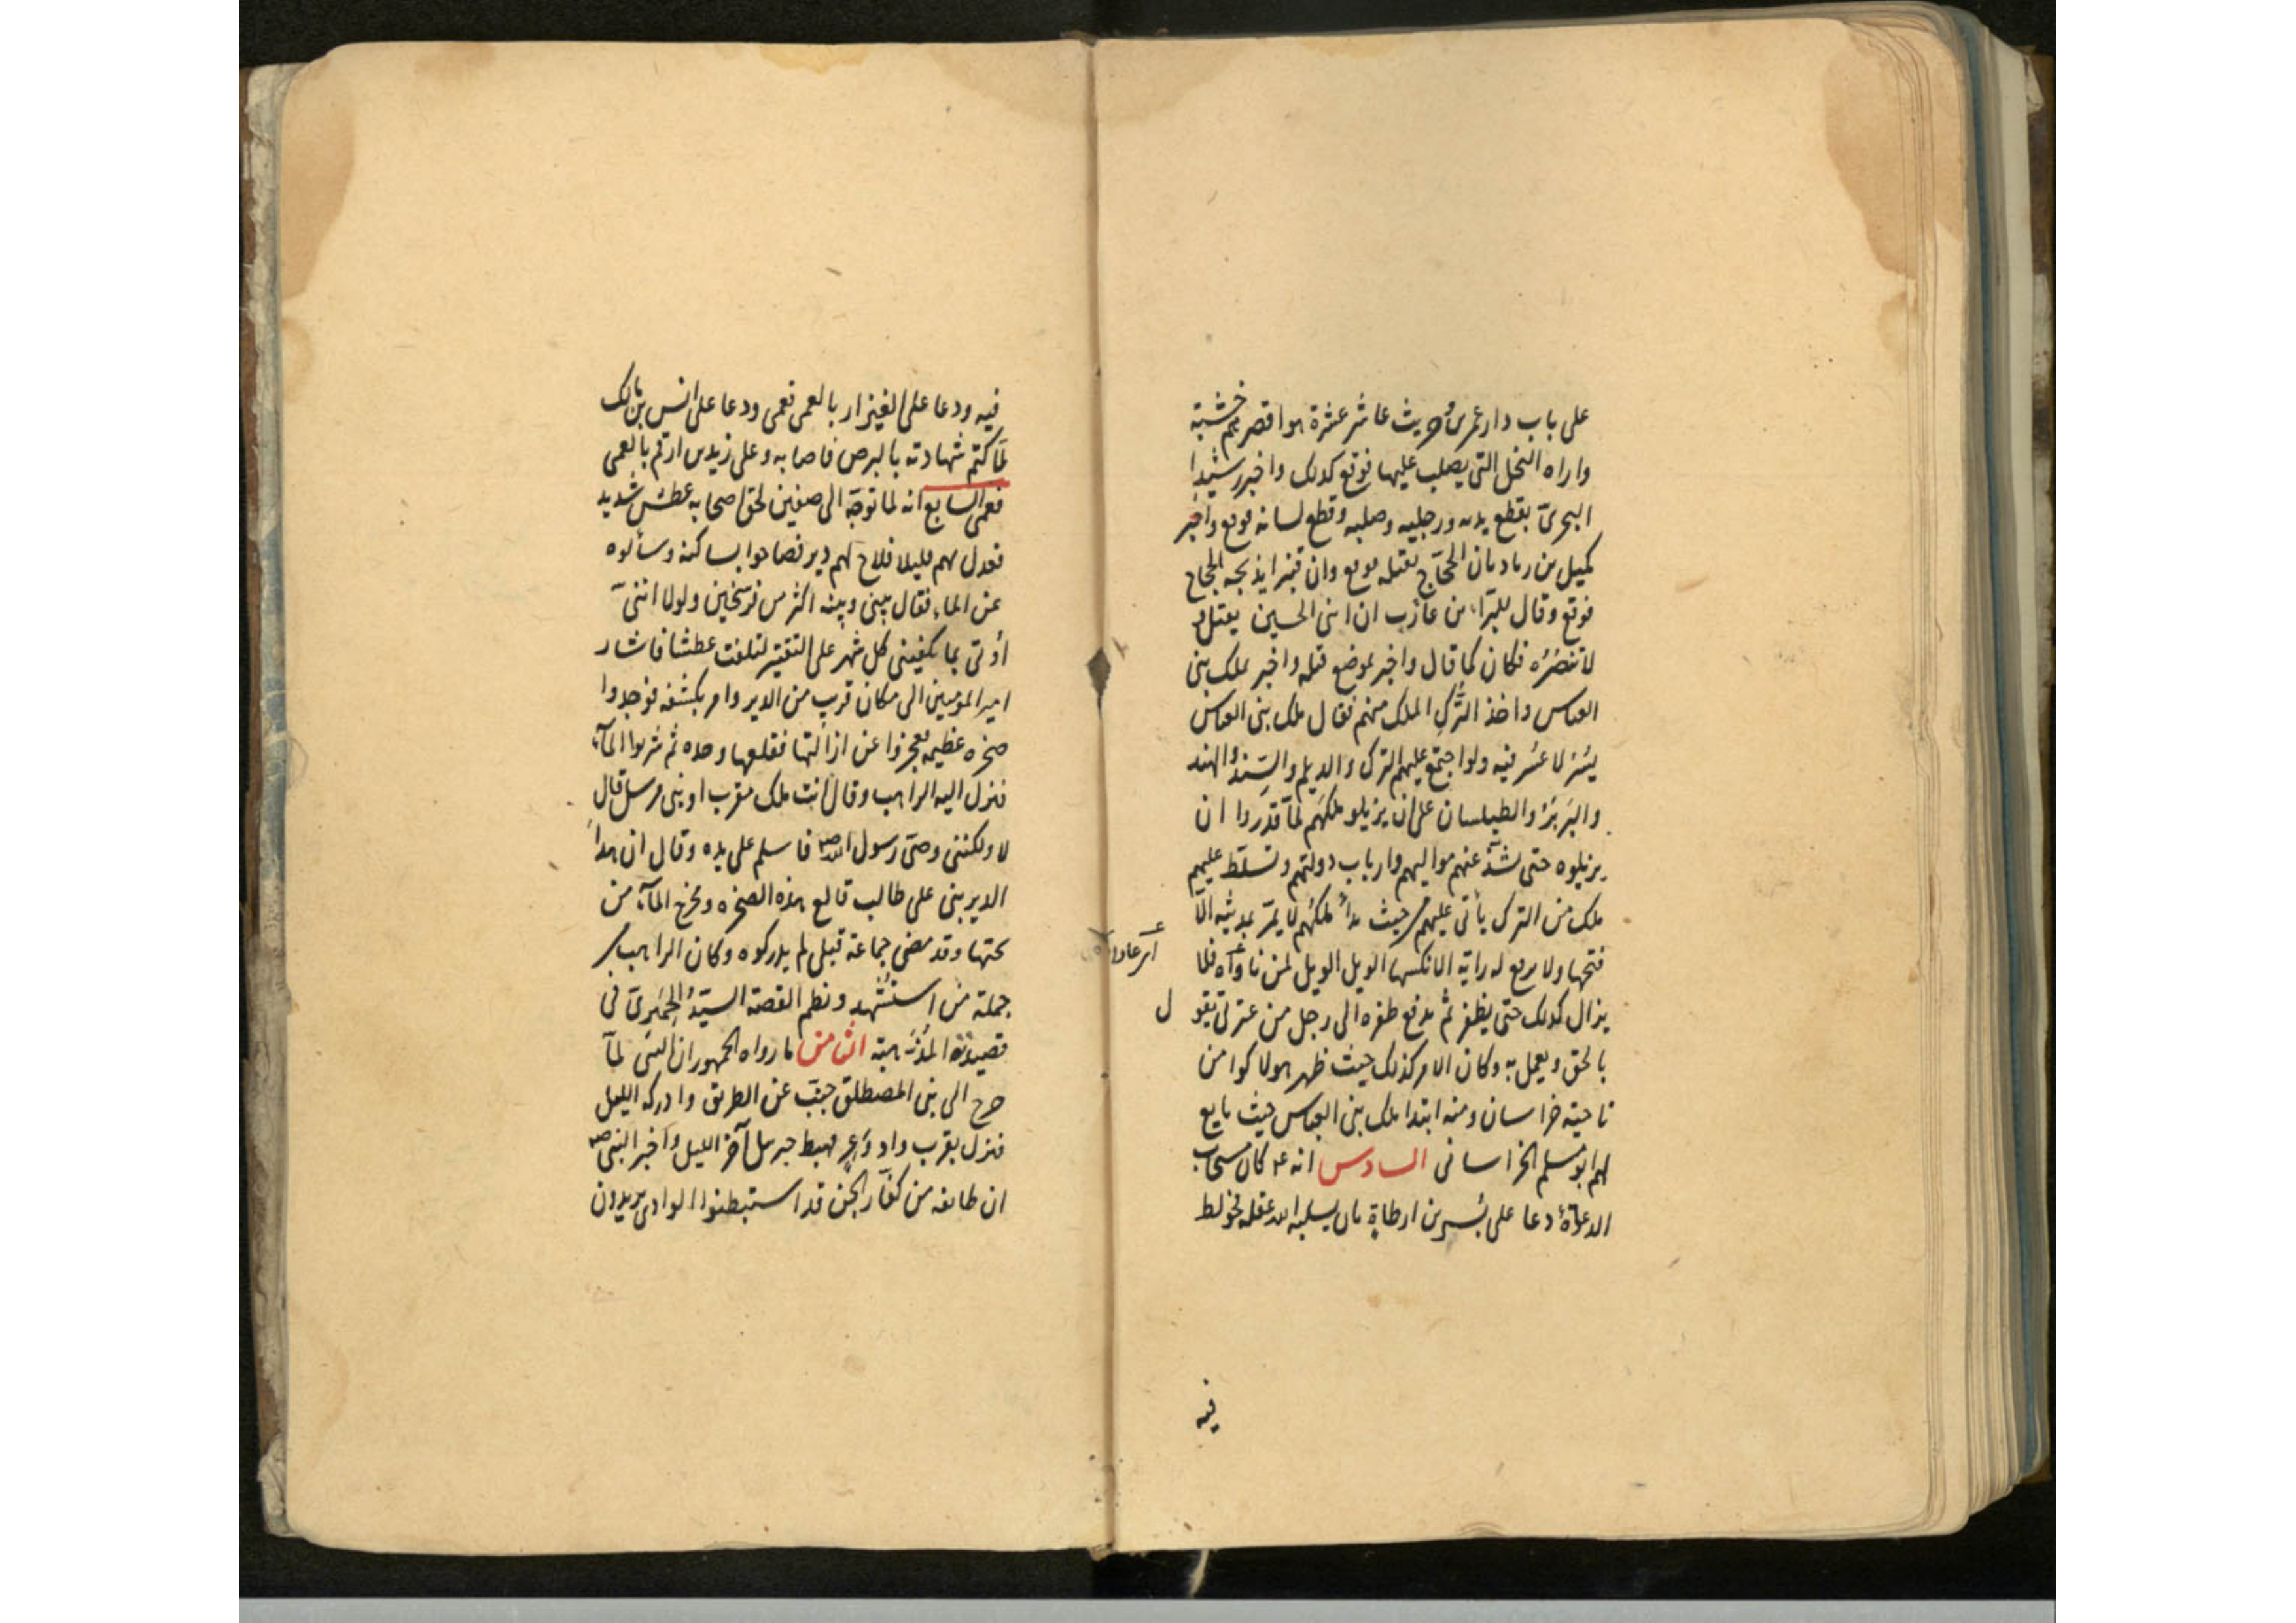 على باب دار عمرو بن حريث عاشر عشرة هو اقصرهم خشبة
واراه النخل التى يصلب عليها فوقع كذلك واخبر رشيدا
البحرىّ بقطع يديه ورجليه وصلبه وقطع لسانه فوقع واخبر
كميل بن زياد بان الحجّاج يقتله فوقع وان قنبرا يذبحه الحجاج
فوقع وقال للبرّاء بن عازب ان ابنى الحسين يقتل و
لا تنصُرُه فكان كما قال واخبر بموضع قتله واخبر بملك بنى
العباس واخذ التُّركِ الملك منهم فقال ملك بنى العباس
يسُر لا عسُر فيه ولو اجتمع عليهم الترك والديلم والسِّند والهند
والبَربَرُ والطيلسان على ان يزيلو ملكَهم لمَّا قدَروا ان
يزيلوه حتى يشذَّ عنهم مواليهم وارباب دولتهم وتسلّط عليهم
ملك من الترك يأتى عليهم من حيث بدأ ملكُهم لا يمرّ بمدينه الّا
فتحها ولا يرفع له راية الا نكسها الويل الويل لمن ناوَاه فلا
اى عاداه
يزال كذلك حتى يظفر ثم يدفع ظفره الى رجل من عترتى يقو
ل
بالحق ويعمل به وكان الامر كذلك حيث ظهر هولاكوا من
ناحية خراسان ومنه ابتدا ملك بنى العباس حيث بايع
لهم ابو مسلم الخراسانى السادس انه ع كان مستجاب
الدعوَةُ دعا على بُسر بن ارطاة بان يسلبه الله عقله فخولط
فيه
فيه ودعا على الغيزار بالعمى فعمى ودعا على انس بن مالك
لمّا كتم شهادته بالبرص فاصابه وعلى زيد بن ارقم بالعمى
فعمى السابع انه لما توجّه الى صفين لحق اصحابه عطش شديد
فعدل بهم قليلا فلاح لهم دير فصاحوا بساكنه وسألوه
عن الماء فقال بينى وبينه اكثر من فرسخين ولولا اننىّ
أوتى بما يكفينى كل شهر على التقتير لتلفت عطشا فاشار
امير المؤمنين الى مكان قرب من الدير وامر بكشفه فوجدوا
صخره عظيمه فعجزوا عن ازالتها فقلعها وحده ثم شربوا المآء
فنزل اليه الراهب وقال أنت ملك مقرب او نبى مرسل قال
لا ولكننى وصىّ رسول الله ص فاسلم على يده وقال ان هذا
الدير بنى على طالب قالع هذه الصخره ومخرج المآء من
تحتها وقد مضى جماعة قبلى لم يدركوه وكان الراهب من
جملة من استشهد ونظم القصة السيّدُ الحِميَرىّ فى
قصيدته المُذَهّبة الثامن ما رواه الجمهور ان النبى لمآ
خرج الى بنى المصطلق جنَّب عن الطريق وادركه الليل
فنزل بقرب واد وَعِرٍ فهبط جبرئيل آخر الليل واخبر النبى ص
ان طايفه من كفّار الجن قد استبطنوا الوادى يريدون